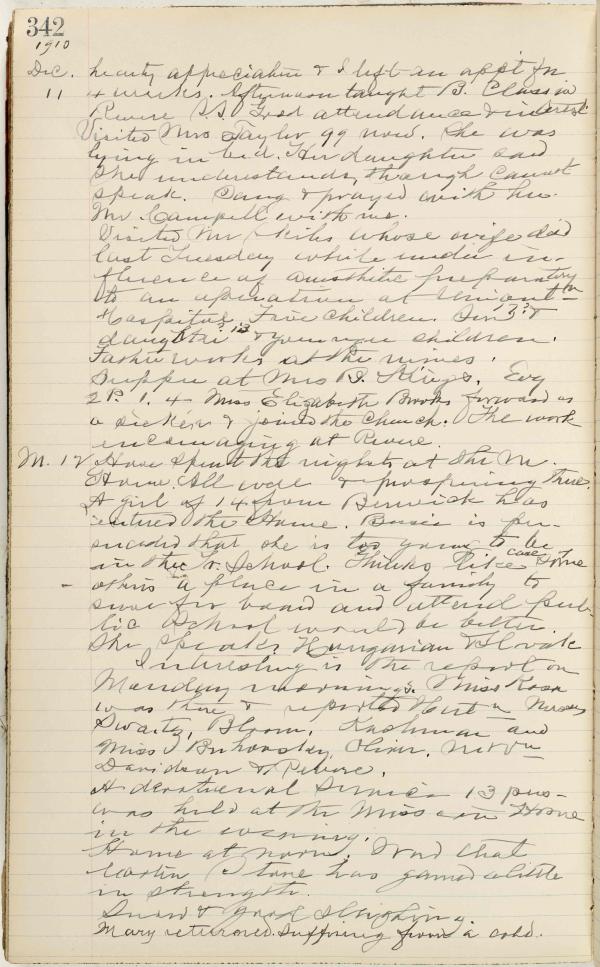 342
1910
Dec. hearty appreciation & I left an app't for
11 4 weeks. Afternoon taught B. Class in
Revere S.S. Good attendance & interest.
Visited Mrs Taylor 99 now. She was
lying in bed. Her daughter said
she understands, though cannot
speak. Sang & prayed with her.
Mr. Campell with me.
Visited Mr whose wife died
last Tuesday while under in-
fluence of anesthetic preparatory
to an operation at Uniontown
Hospital. Five children. Son &
daughter 13 & younger children.
Father works at the mines.
Supper at Mrs D. Evg
2 P. 1. 4 Miss Elizabeth Brooks forward as
a seeker & joined the Church. The work
encouraging at Revere.
M. 12 Have spent the nights at the M.
Home. All were & prospering there.
A girl of 14 from Berwick has
entered the Home. is per-
suaded that she is too young to be
in the Tr. School. Thinks like case some
others a place in a family to
for board and attend pub-
lic School would be better.
She speaks Hungarian & Slovak
Interesting is the report on
Monday mornings. Miss
was there & reported Misses
Swartz, Bloom, Kashman and
Miss
Davidson & Revere.
A devotional Service 13 pres-
was held at the Mission Home
in the evening.
Home at noon. Word that
Stone has gained a little
in strength.
Snow & good sleighing.
Mary returned suffering from a cold.